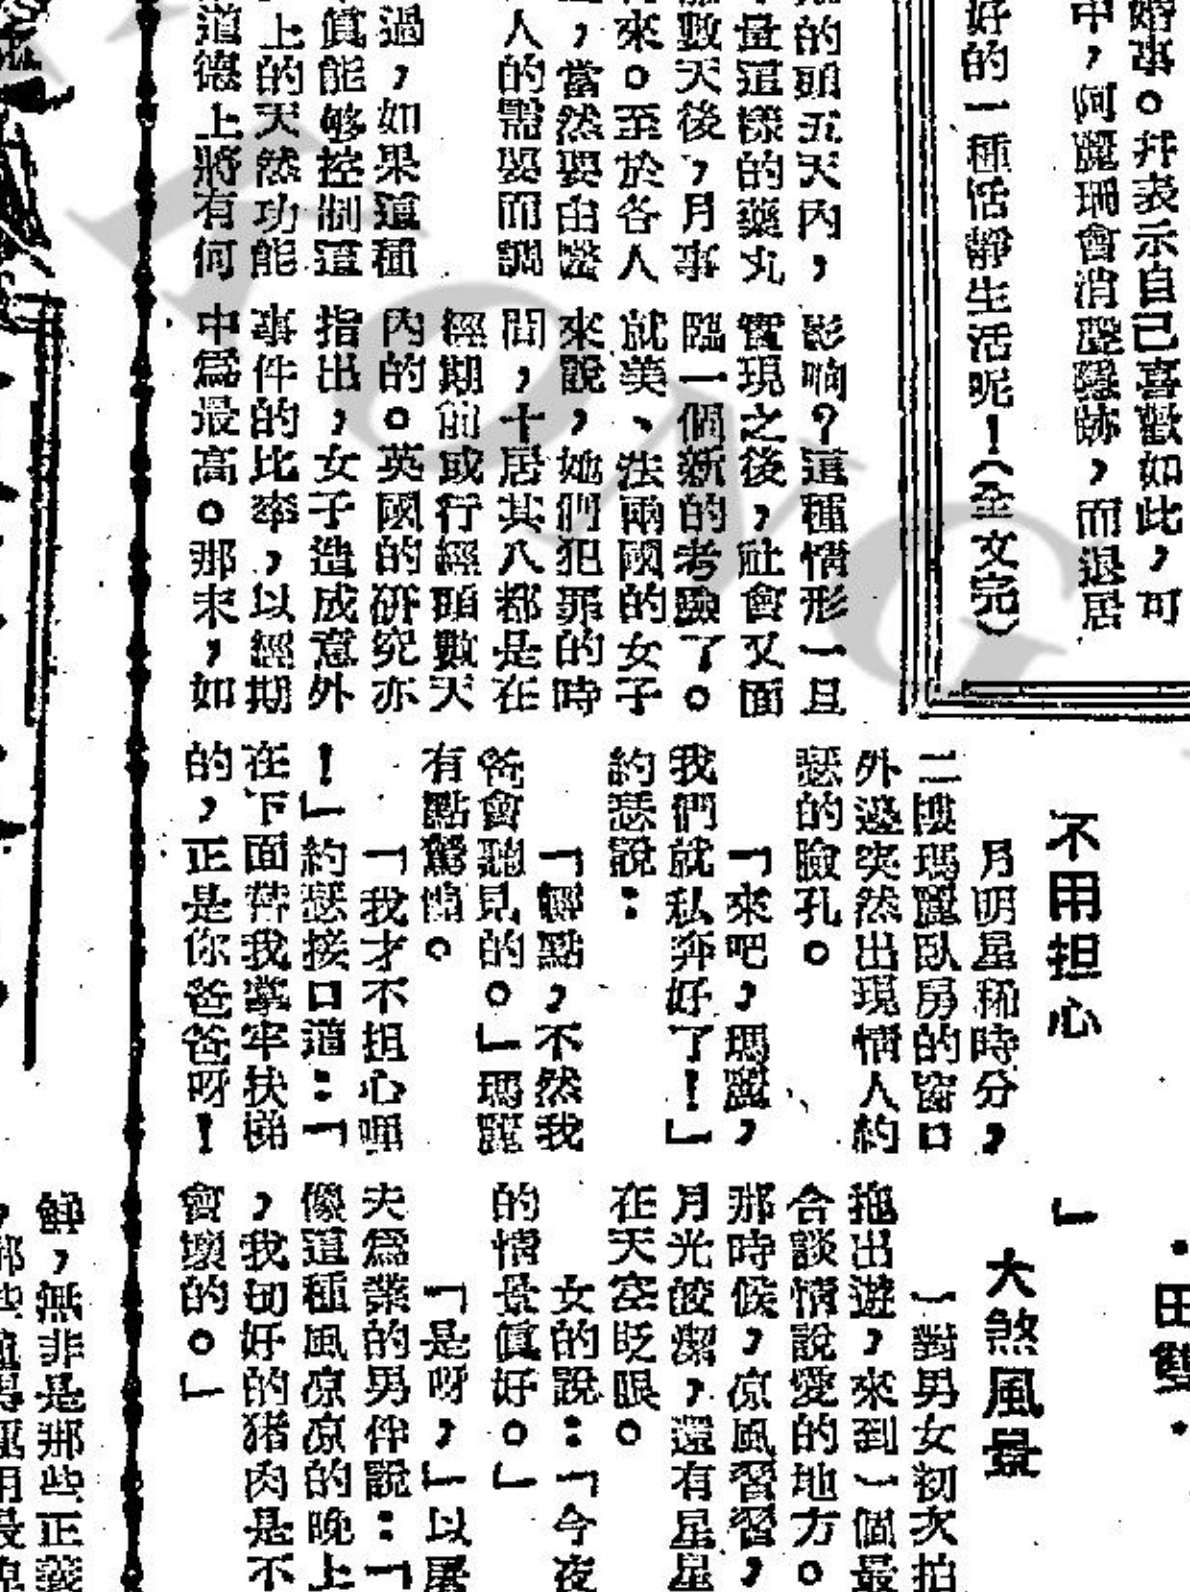 婚事。幷表示自己喜歡如此，可
中，阿麗珊會消聲隱跡，而退居
好的一種恬靜生活呢！（全文完）
的頭五天內，
量這樣的藥丸
數天後，月事
來。至於各人
，當然要由醫
人的需要而調
過，如果這種
眞能够控制這
上的天然功能
道德上將有何
影响？這種情形一旦
實現之後，社會又面
臨一個新的考驗了。
就美、法兩國的女子
來說，她們犯罪的時
間，十居其八都是在
經期前或行經頭數天
內的。英國的研究亦
指出，女子造成意外
事件的比率，以經期
中爲最高。那末，如
·田雙·
不用担心
月明星稀時分，
二樓瑪麗臥房的窗口
外邊突然出現情人約
瑟的臉孔。
「來吧，瑪麗，
我們就私奔好了！」
約瑟說：
「輕點，不然我
爸會聽見的。」瑪麗
有點驚惶。
「我才不担心哩
！」約瑟接口道：「
在下面替我掌牢扶梯
的，正是你爸爸呀！
」
大煞風景
一對男女初次拍
拖出遊，來到一個最
合談情說愛的地方。
那時候，凉風習習，
月光皎潔，還有星星
在天空眨眼。
女的說：「今夜
的情景眞好。」
「是呀，」以屠
夫爲業的男伴說：「
像這種風凉凉的晚上
，我切好的猪肉是不
會壞的。」
鮮，無非是那些正義
HONG